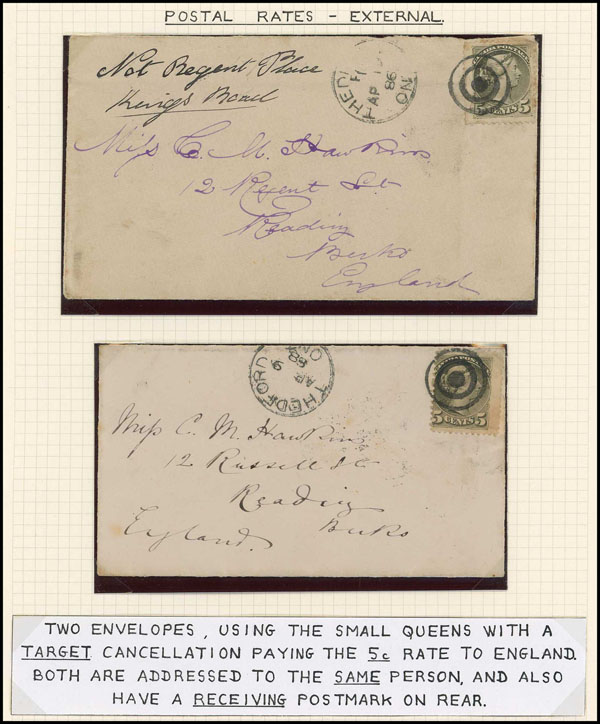 POSTAL RATES - EXTERNAL.
Not Regent Place
Kings Road
THED
AP
86
ON
CANADA POSTAGE
5 CENTS 5
Miss C. M. Hawkins
12 Regent St.
Reading
Berks
England
THEDFORD
AP 9
ONT
5 CENTS 5
Miss C. M. Hawkins
12 Russell St
Reading
Berks
England.
TWO ENVELOPES, USING THE SMALL QUEENS WITH A
TARGET CANCELLATION PAYING THE 5c RATE TO ENGLAND.
BOTH ARE ADDRESSED TO THE SAME PERSON, AND ALSO
HAVE A RECEIVING POSTMARK ON REAR.